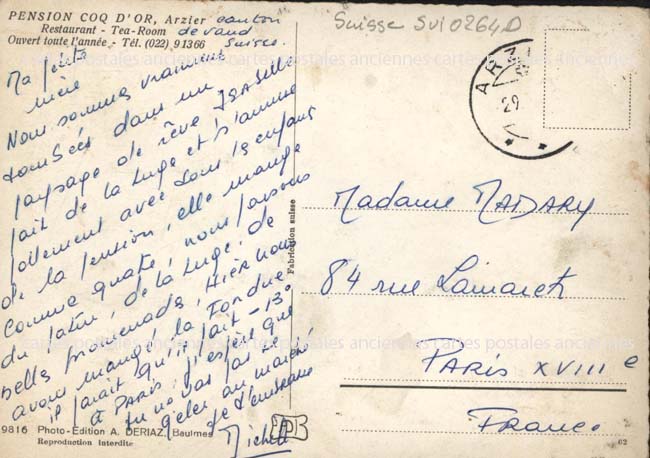 PENSION COQ D'OR, Arzier canton
Restaurant - Tea-Room de vaud
Ouvert toute l'année - Tél. (022) 91366 Suisse.
Suisse SVI0264D
Ma petite
mère
Nous sommes vraiment
tombées dans un
paysage de rêve ISABELLE
fait de la luge et s'amuse
follement avec tous les enfants
de la pension, elle mange
comme quatre, nous faisons
du patin, de la luge, de
belles promenades, Hier nous
avons mangé la Fondue
il paraît qu'il fait -13°
à PARIS, j'espère que
tu ne vas pas te
geler au marché
de
Michel
9816 Photo-Edition A. DERIAZ, Baulmes
Reproduction interdite
Fabrication suisse
AR
29
Madame MADARY
84 rue Lamarck
PARIS XVIII e
France
62
cartes postales anciennes cartes postales anciennes
cartes postales anciennes cartes postales anciennes